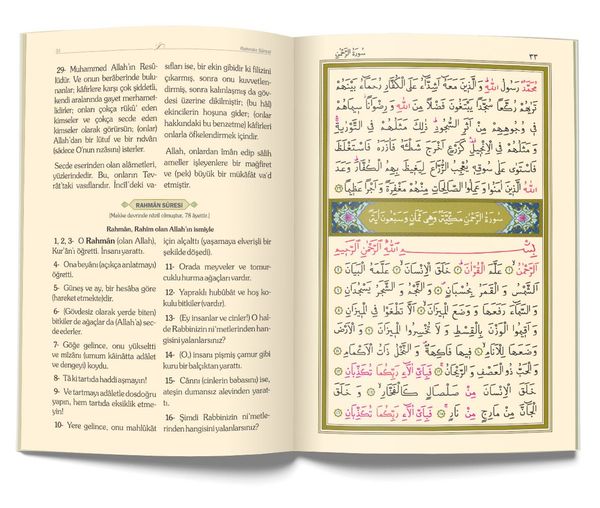 32
Rahmân Sûresi
29- Muhammed Allah'ın Resû-
lüdür. Ve onun berâberinde bulu-
nanlar; kâfirlere karşı çok şiddetli,
kendi aralarında gayet merhamet-
lidirler; onları çokça rükû' eden
kimseler ve çokça secde eden
kimseler olarak görürsün; (onlar)
Allah'dan bir lütuf ve bir rıdvân
(sâdece O'nun rızâsını) isterler.
Secde eserinden olan alâmetleri,
yüzlerindedir. Bu, onların Tev-
rât'taki vasıflarıdır. İncîl'deki va-
sıfları ise, bir ekin gibidir ki filizini
çıkarmış, sonra onu kuvvetlen-
dirmiş, sonra kalınlaşmış da göv-
desi üzerine dikilmiştir; (bu hâl)
ekincilerin hoşuna gider; (onlar
hakkındaki bu benzetme) kâfirleri
onlarla öfkelendirmek içindir.
Allah, onlardan îmân edip sâlih
ameller işleyenlere bir mağfiret
ve (pek) büyük bir mükâfât va'd
etmiştir.
RAHMÂN SÛRESİ
(Mekke devrinde nâzil olmuştur, 78 âyettir.)
Rahmân, Rahîm olan Allah'ın ismiyle
1, 2, 3- O Rahmân (olan Allah),
Kur'ân'ı öğretti. İnsanı yarattı.
4- Ona beyânı (açıkça anlatmayı)
öğretti.
5- Güneş ve ay, bir hesâba göre
(hareket etmekte)dir.
6- (Gövdesiz olarak yerde biten)
bitkiler de ağaçlar da (Allah'a) sec-
de ederler.
7- Göğe gelince, onu yükseltti
ve mîzânı (umum kâinâtta adâlet
ve dengeyi) koydu.
8- Tâ ki tartıda haddi aşmayın!
9- Ve tartmayı adâletle dosdoğru
yapın, hem tartıda eksiklik etme-
yin!
10- Yere gelince, onu mahlûkāt
için alçalttı (yaşamaya elverişli bir
şekilde döşedi).
11- Orada meyveler ve tomur-
cuklu hurma ağaçları vardır.
12- Yapraklı hubûbât ve hoş ko-
kulu bitkiler (vardır).
13- (Ey insanlar ve cinler!) O hal-
de Rabbinizin ni'metlerinden han-
gisini yalanlarsınız?
14- (O,) insanı pişmiş çamur gibi
kuru bir balçıktan yarattı.
15- Cânnı (cinlerin babasını) ise,
ateşin dumansız alevinden yarat-
tı.
16- Şimdi Rabbinizin ni'metle-
rinden hangisini yalanlarsınız?
سُورَةُ الرَّحْمٰنِ
٣٣
مُحَمَّدٌ رَسُولُ اللّٰهِ وَالَّذِينَ مَعَهُ أَشِدَّاءُ عَلَى الْكُفَّارِ رُحَمَاءُ بَيْنَهُمْ
تَرٰيهُمْ رُكَّعًا سُجَّدًا يَبْتَغُونَ فَضْلًا مِنَ اللّٰهِ وَرِضْوَانًا سِيمَاهُمْ
فِي وُجُوهِهِمْ مِنْ أَثَرِ السُّجُودِ ذٰلِكَ مَثَلُهُمْ فِي التَّوْرٰيةِ
وَمَثَلُهُمْ فِي الْإِنْجِيلِ كَزَرْعٍ أَخْرَجَ شَطْأَهُ فَآزَرَهُ فَاسْتَغْلَظَ
فَاسْتَوٰى عَلٰى سُوقِهِ يُعْجِبُ الزُّرَّاعَ لِيَغِيظَ بِهِمُ الْكُفَّارَ وَعَدَ
اللّٰهُ الَّذِينَ آمَنُوا وَعَمِلُوا الصَّالِحَاتِ مِنْهُمْ مَغْفِرَةً وَأَجْرًا عَظِيمًا
سُورَةُ الرَّحْمٰنِ مَكِّيَّةٌ وَهِيَ ثَمَانٍ وَسَبْعُونَ آيَةً
بِسْمِ اللّٰهِ الرَّحْمٰنِ الرَّحِيمِ
الرَّحْمٰنُ ۝ عَلَّمَ الْقُرْآنَ ۝ خَلَقَ الْإِنْسَانَ ۝ عَلَّمَهُ الْبَيَانَ ۝
الشَّمْسُ وَالْقَمَرُ بِحُسْبَانٍ ۝ وَالنَّجْمُ وَالشَّجَرُ يَسْجُدَانِ ۝
وَالسَّمَاءَ رَفَعَهَا وَوَضَعَ الْمِيزَانَ ۝ أَلَّا تَطْغَوْا فِي الْمِيزَانِ ۝
وَأَقِيمُوا الْوَزْنَ بِالْقِسْطِ وَلَا تُخْسِرُوا الْمِيزَانَ ۝ وَالْأَرْضَ
وَضَعَهَا لِلْأَنَامِ ۝ فِيهَا فَاكِهَةٌ وَالنَّخْلُ ذَاتُ الْأَكْمَامِ ۝
وَالْحَبُّ ذُو الْعَصْفِ وَالرَّيْحَانُ ۝ فَبِأَيِّ آلَاءِ رَبِّكُمَا تُكَذِّبَانِ ۝
خَلَقَ الْإِنْسَانَ مِنْ صَلْصَالٍ كَالْفَخَّارِ ۝ وَخَلَقَ
الْجَانَّ مِنْ مَارِجٍ مِنْ نَارٍ ۝ فَبِأَيِّ آلَاءِ رَبِّكُمَا تُكَذِّبَانِ ۝